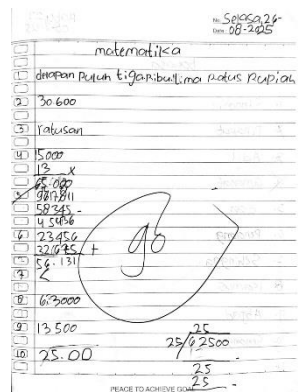 No: Selasa, 26-
Date: 08-2025
matematika
1 delapan puluh tiga ribu lima ratus rupiah
2 30.600
3 ratusan
4 5000
13 x
65.000
5
58345 -
6 23456
+
56.131
7 <
8 6.3000
9 13 500
10 25.00
25
25/62500
25
25
PEACE TO ACHIEVE GOAL